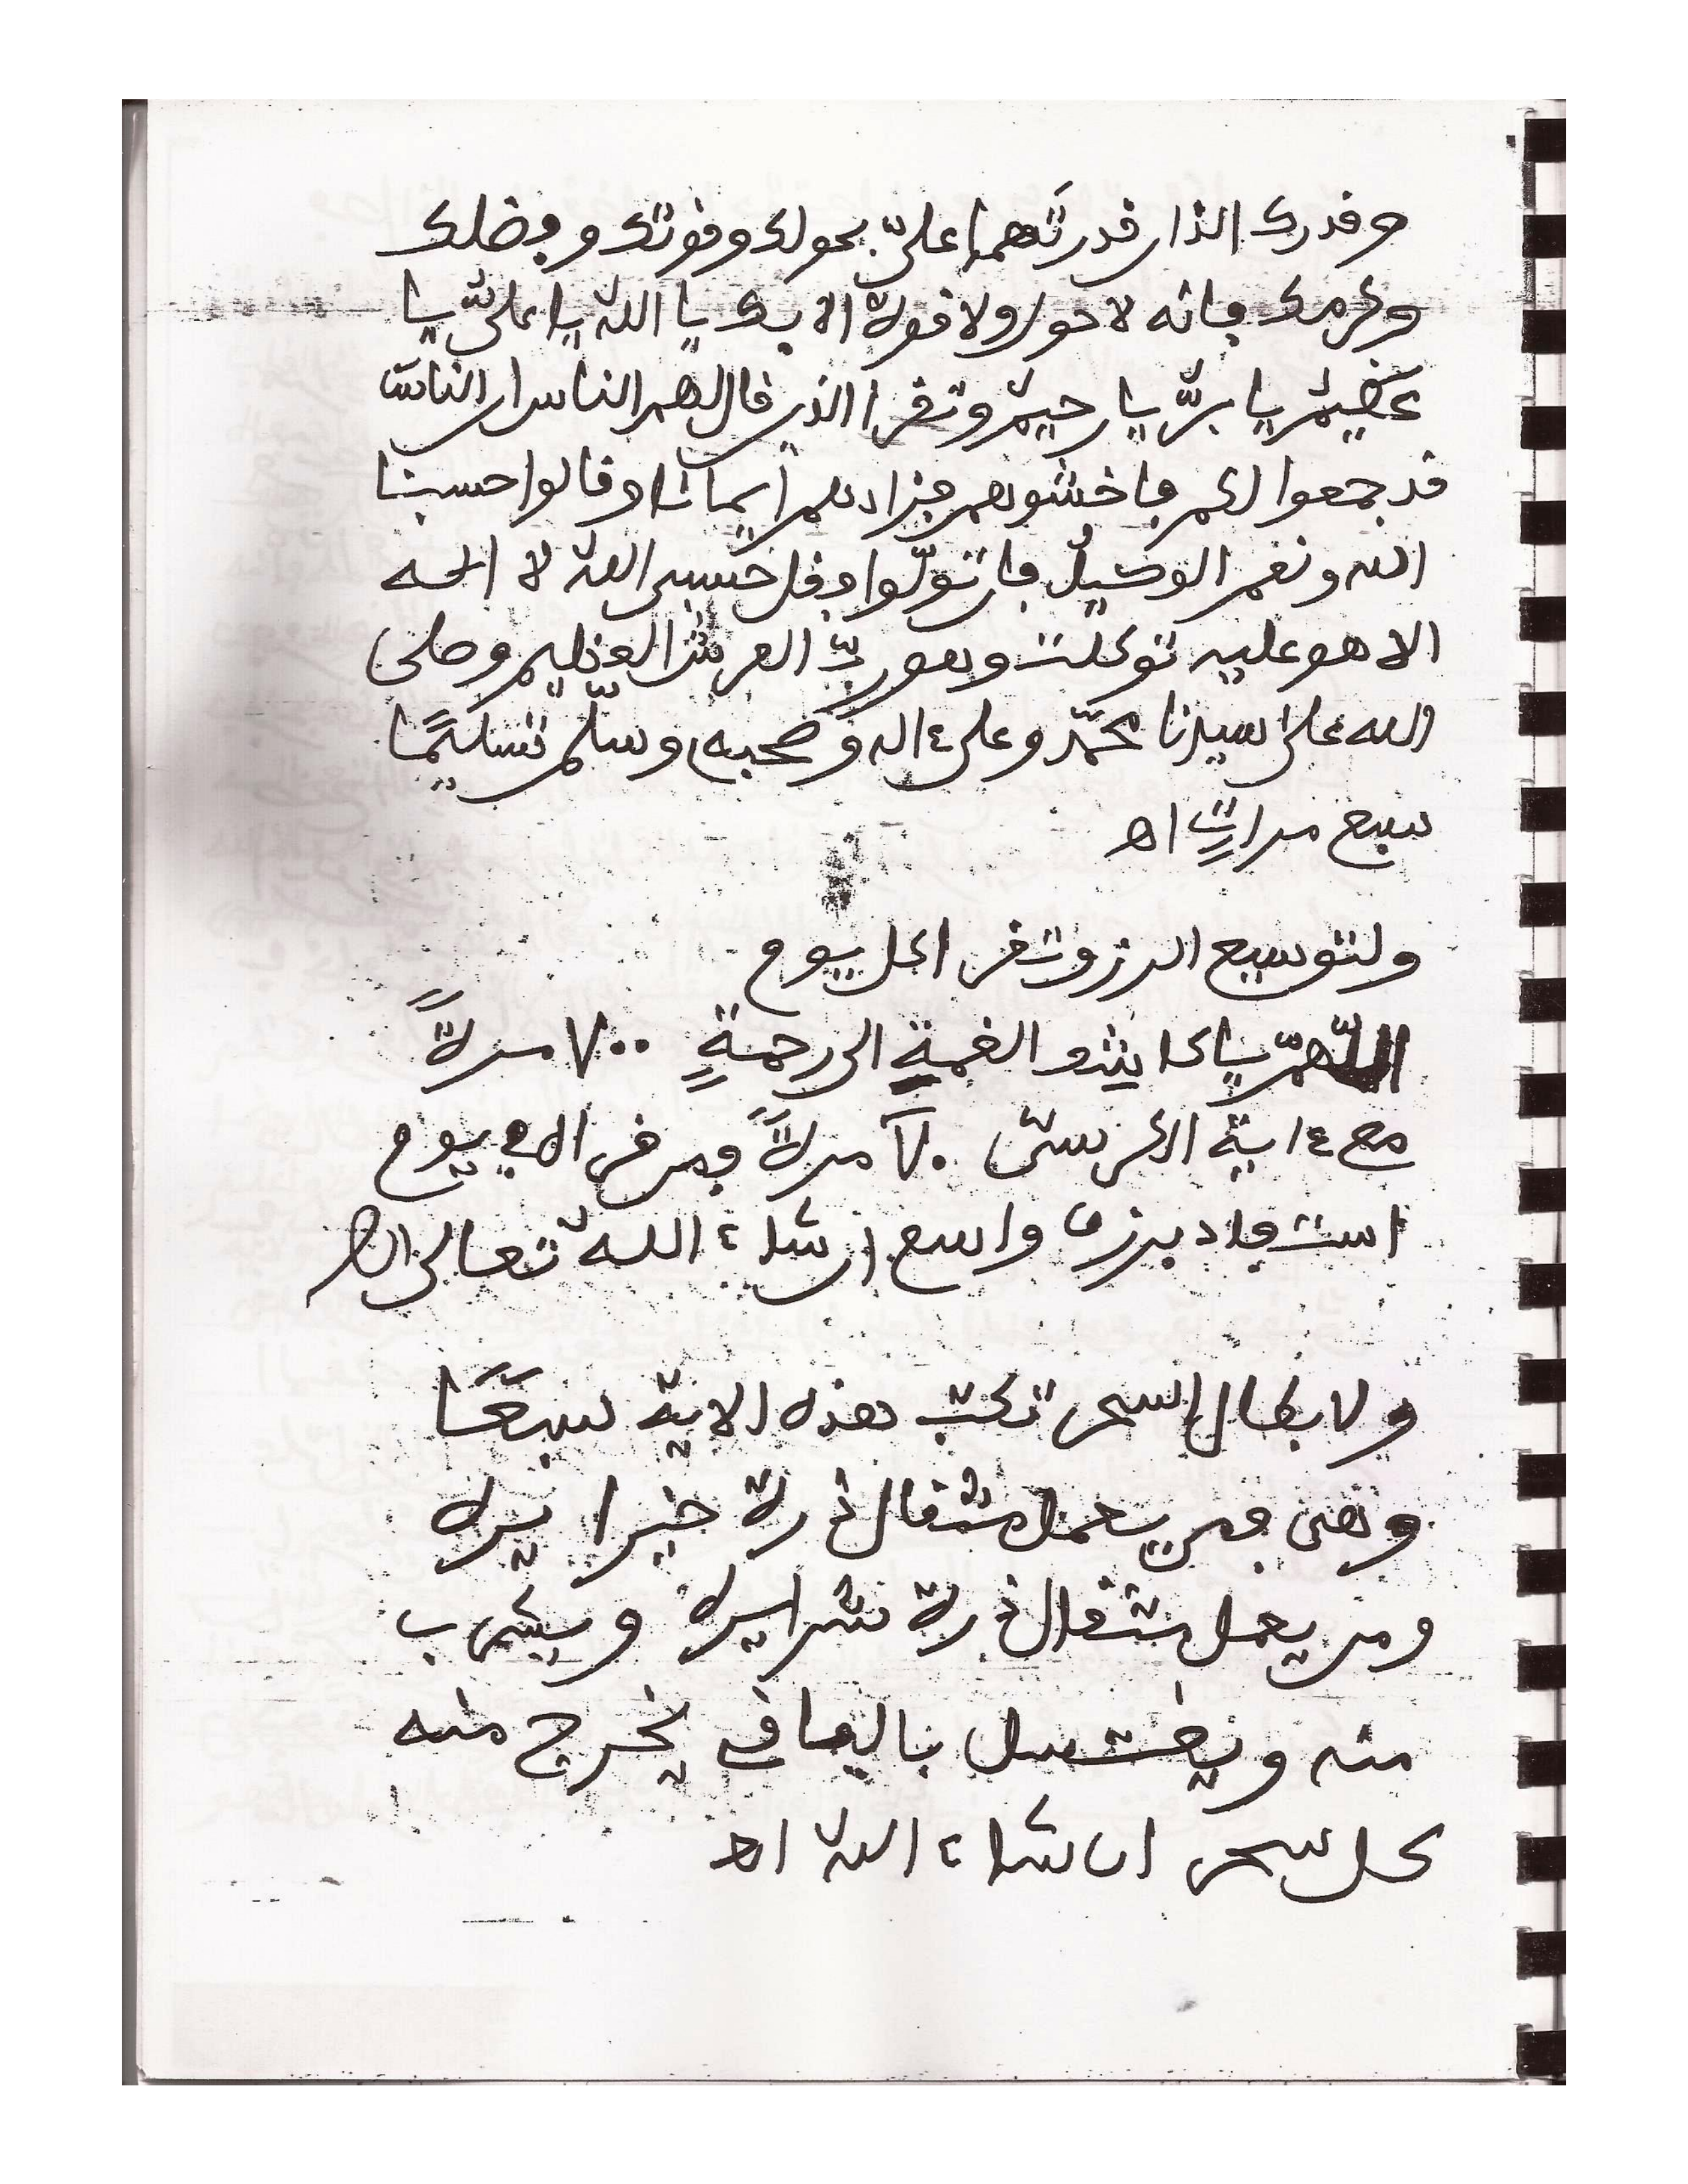 وقدرك الذان قدرتهما علىّ بحولك وقوتك وبفضلك
وكرمك فانه لا حول ولا قوة الا بك يا الله يا علىّ يا
عظيم يا برّ يا رحيم وتقرا الذين قال لهم الناس ان الناس
قد جمعوا لكم فاخشوهم فزادهم ايمانا وقالوا حسبنا
الله ونعم الوكيل فان تولّوا فقل حسبي الله لا اله
الا هو عليه توكلت وهو ربّ العرش العظيم وصلى
الله على سيدنا محمّد وعلى ءاله وصحبه وسلّم تسليمًا
سبع مرات اه
ولتوسيع الرزق تقرا كل يوم
اللّهمّ يا كاشف الغمة الى رحمة ٧٠٠ مرةً
مع ءاية الكرسى ٧٠ مرةً ومن قرا الا فى يوم
استفاد برزق واسع ان شاء الله تعالى اه
ولابطال السحر تكتب هذه الاية سبعًا
وهى فمن يعمل مثقال ذرة خيرا يره
ومن يعمل مثقال ذرة شرا يره ويشرب
منه ويغتسل بالباقي يخرج منه
كل سحر ان شاء الله اه